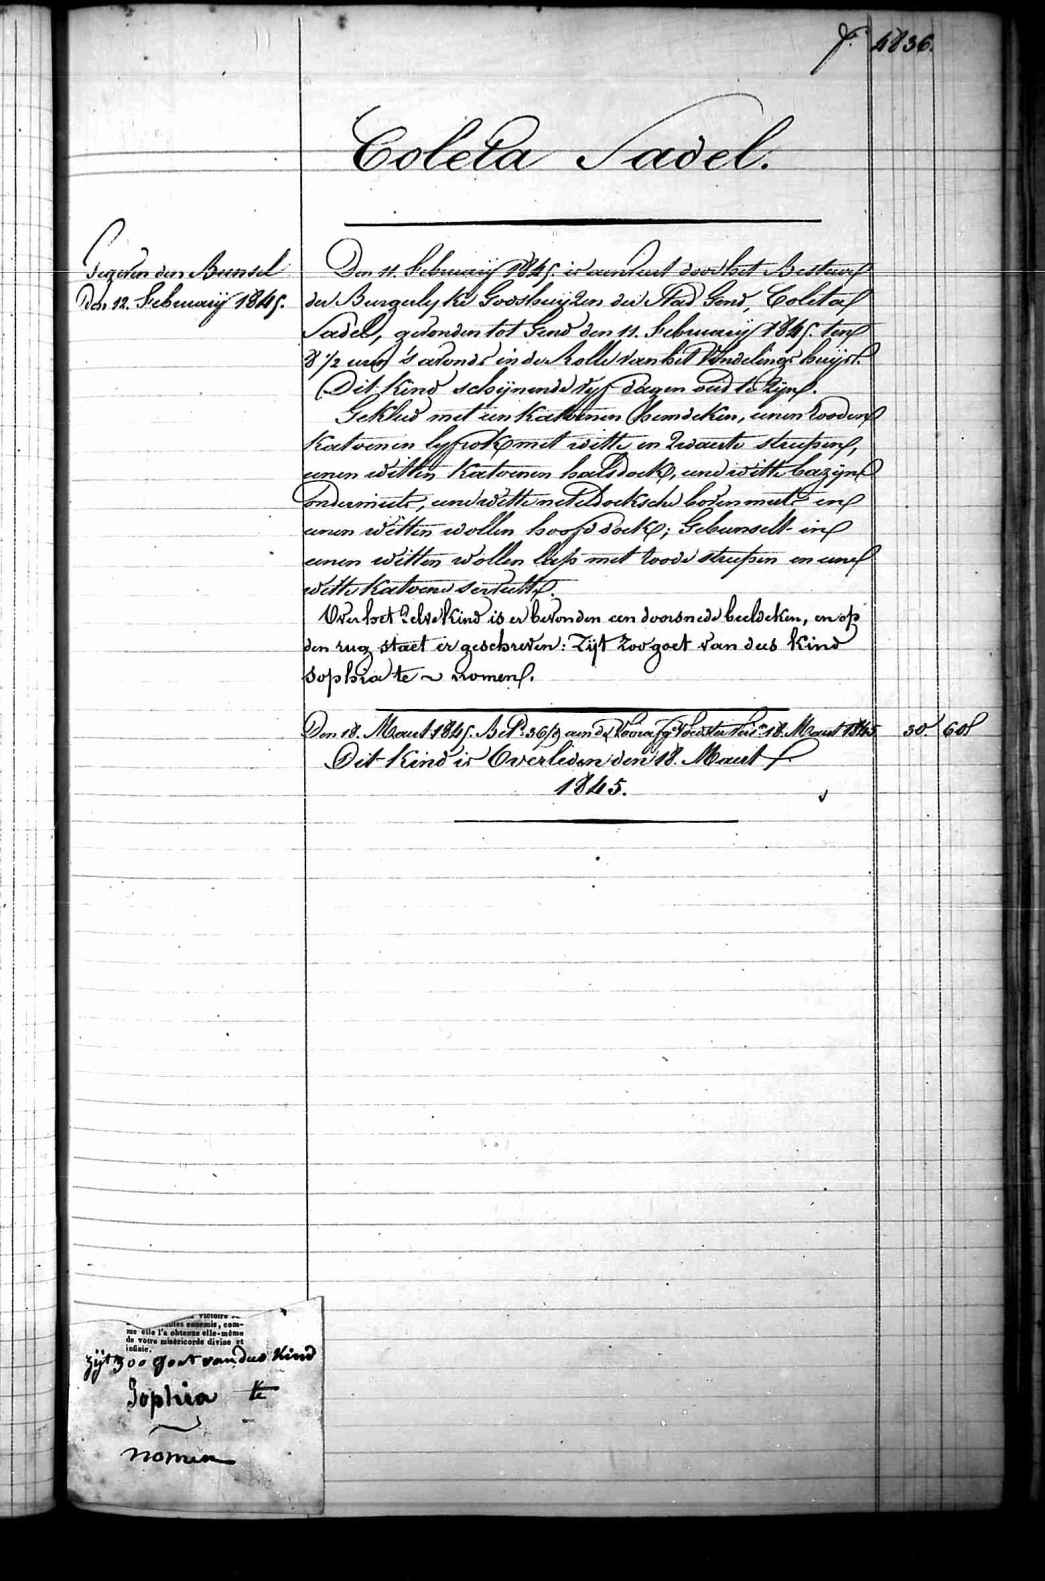 f. 4836.
Coleta Sadel.
Gegeven den Bunsel
Den 12. February 1845.
Den 11. February 1845. is aenveert door het Bestuur
der Burgerlyke Godshuyzen der Stad Gend, Coleta
Sadel, gevonden tot Gend den 11. February 1845. ten
8 1/2 uren s'avonds in de Rolle van het Vondelings huys.
Dit kind schijnende vyf dagen oud te zijn.
Gekleed met een katoenen hemdeken, eenen rooden
katoenen lyfrok met witte en zwarte streepen,
eenen witten katoenen halsdoek, eene witte bazyne
ondermuts, eene witte neteldoeksche bovenmuts en
eenen witten wollen hoofddoek; Gebunselt in
eenen witten wollen lap met roode streepen en eene
witte katoene serviette.
Over het zelve kind is er bevonden een doorsnede beeldeken, en op
den rug staet er geschreven: Zijt zoo goet van dees kind
sophia te ~ nomen.
Den 18. Maert 1845. Bet. 36/9 aen de 18. Maert 1845 30. 60
Dit kind is Overleden den 18. Maert
1845.
victoire
ennemis, com-
me elle l'a obtenue elle-même
de votre miséricorde divine et
infinie.
zijt zoo goet van dees kind
Sophia te
~
nomen